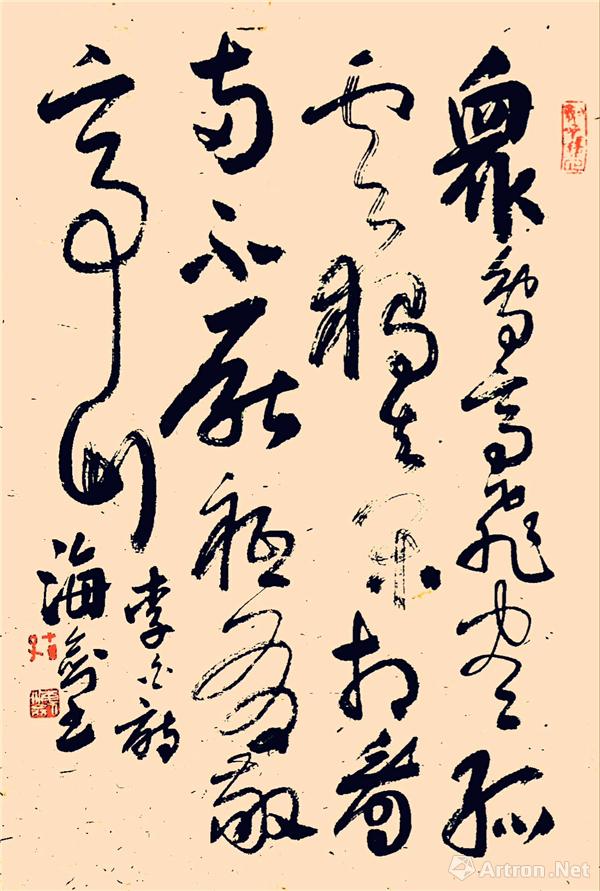 眾鳥高飛盡孤
雲獨去閑相看
兩不厭祗有敬
亭山
李白詩
海
Artron.Net